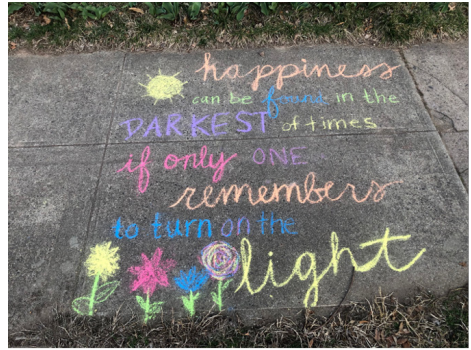 happiness
can be found in the
DARKEST of times
if only ONE
remembers
to turn on the
light